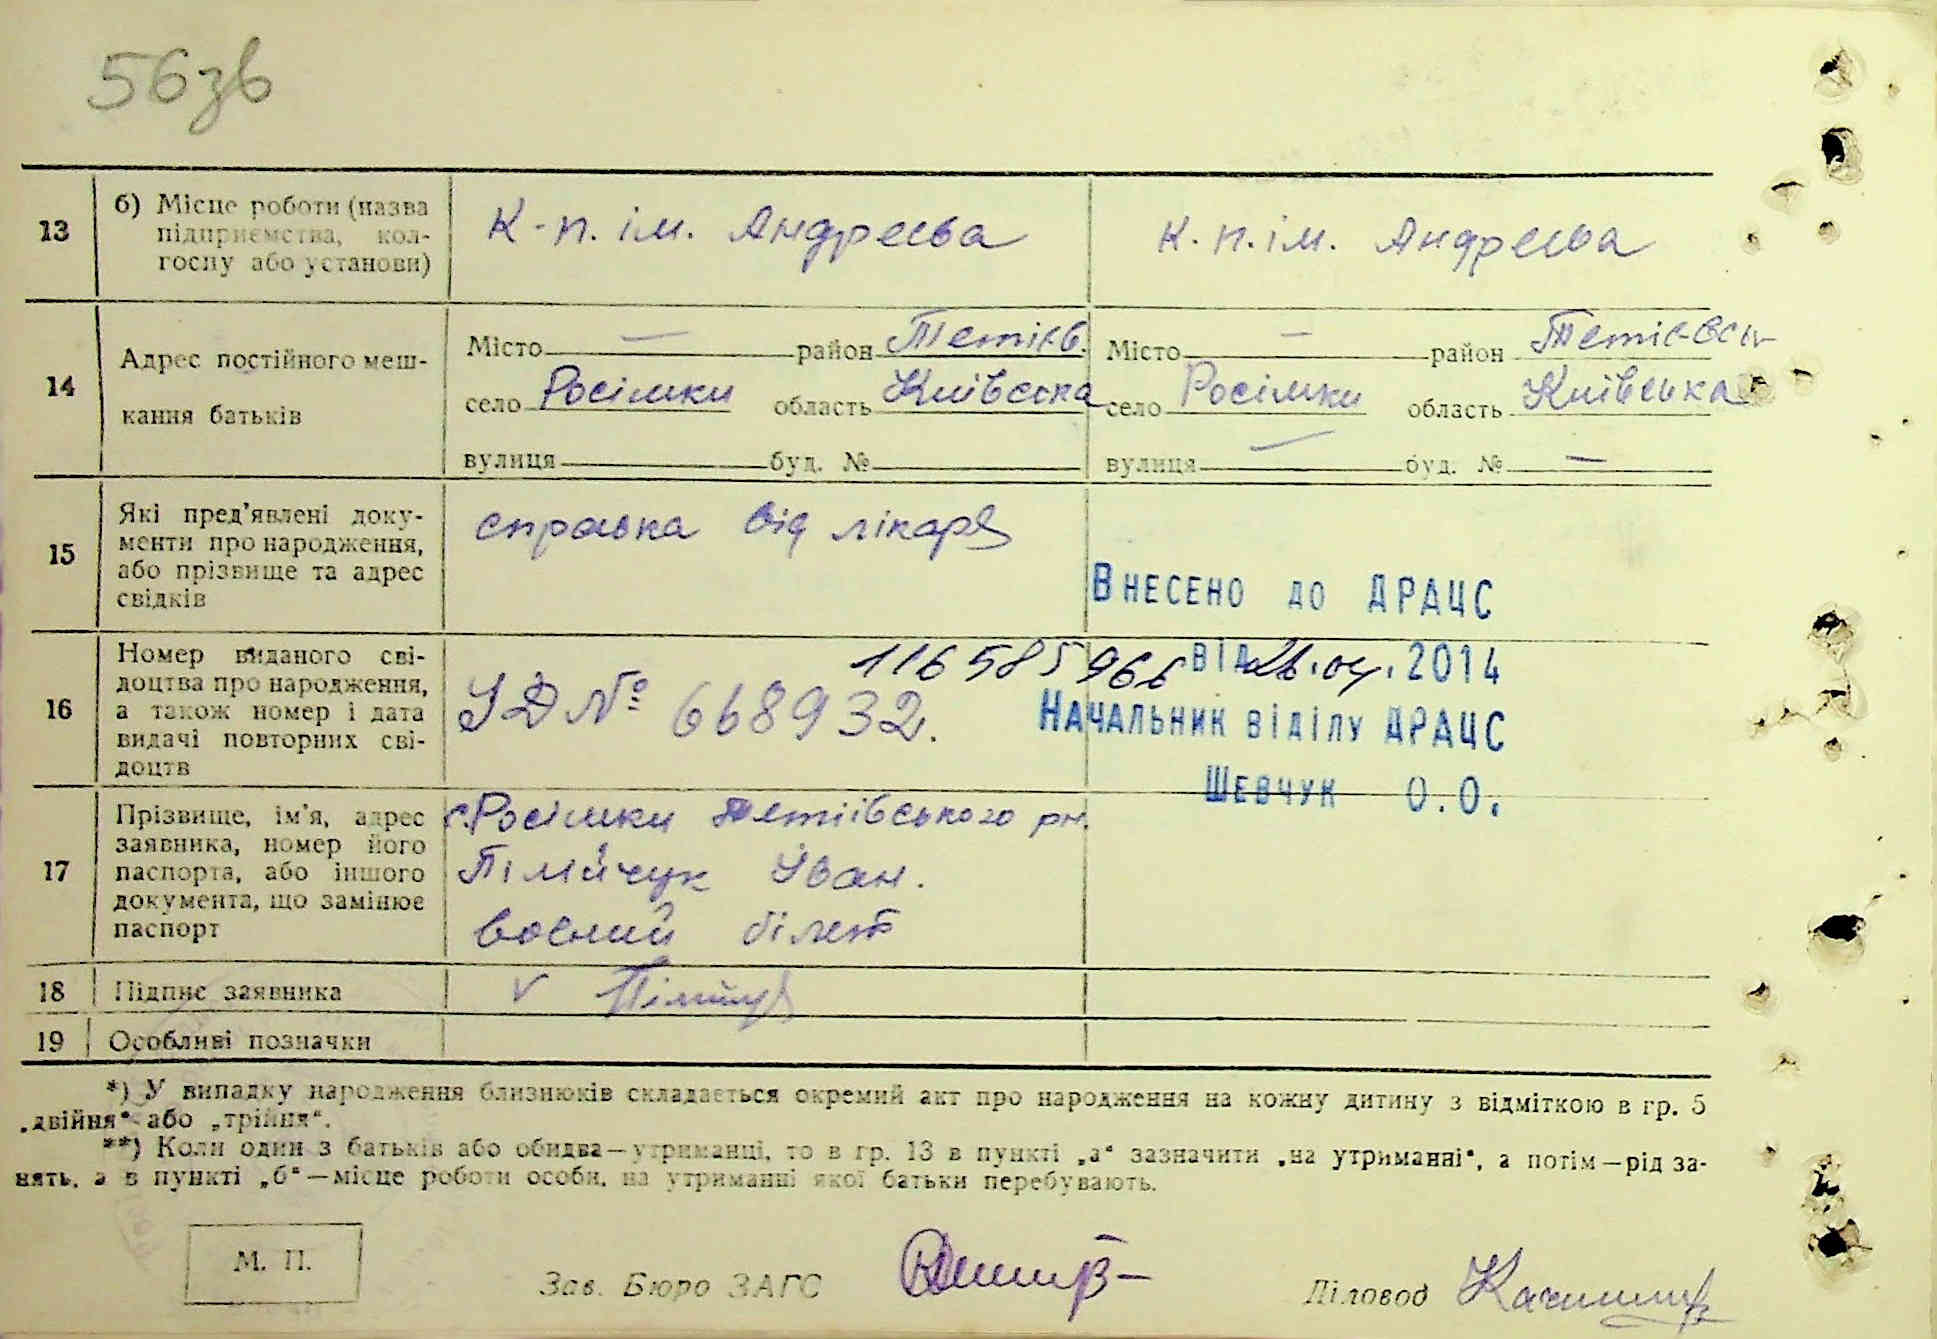 56зв
13 б) Місце роботи (назва підприємства, колгоспу або установи)
К-п. ім. Андреєва
к. п. ім. Андреєва
14 Адрес постійного мешкання батьків
Місто — район Тетієв.
село Росішки область Київська
вулиця буд. №
Місто — район Тетієвськ
село Росішки область Київська
вулиця — буд. № —
15 Які пред'явлені документи про народження, або прізвище та адрес свідків
справка від лікаря
Внесено до ДРАЦС
16 Номер виданого свідоцтва про народження, а також номер і дата видачі повторних свідоцтв
ІД № 668932.
116585966 від 26.04.2014
Начальник відділу ДРАЦС
Шевчук О.О.
17 Прізвище, ім'я, адрес заявника, номер його паспорта, або іншого документа, що замінює паспорт
с. Росішки Тетіївського рн.
Іван.
воєний білет
18 Підпис заявника
v
19 Особливі позначки
*) У випадку народження близнюків складається окремий акт про народження на кожну дитину з відміткою в гр. 5
„двійня“ або „трійня“.
**) Коли один з батьків або обидва—утриманці, то в гр. 13 в пункті „а“ зазначити „на утриманні“, а потім—рід за-
нять, а в пункті „б“—місце роботи особи, на утриманні якої батьки перебувають.
М. П.
Зав. Бюро ЗАГС
Діловод